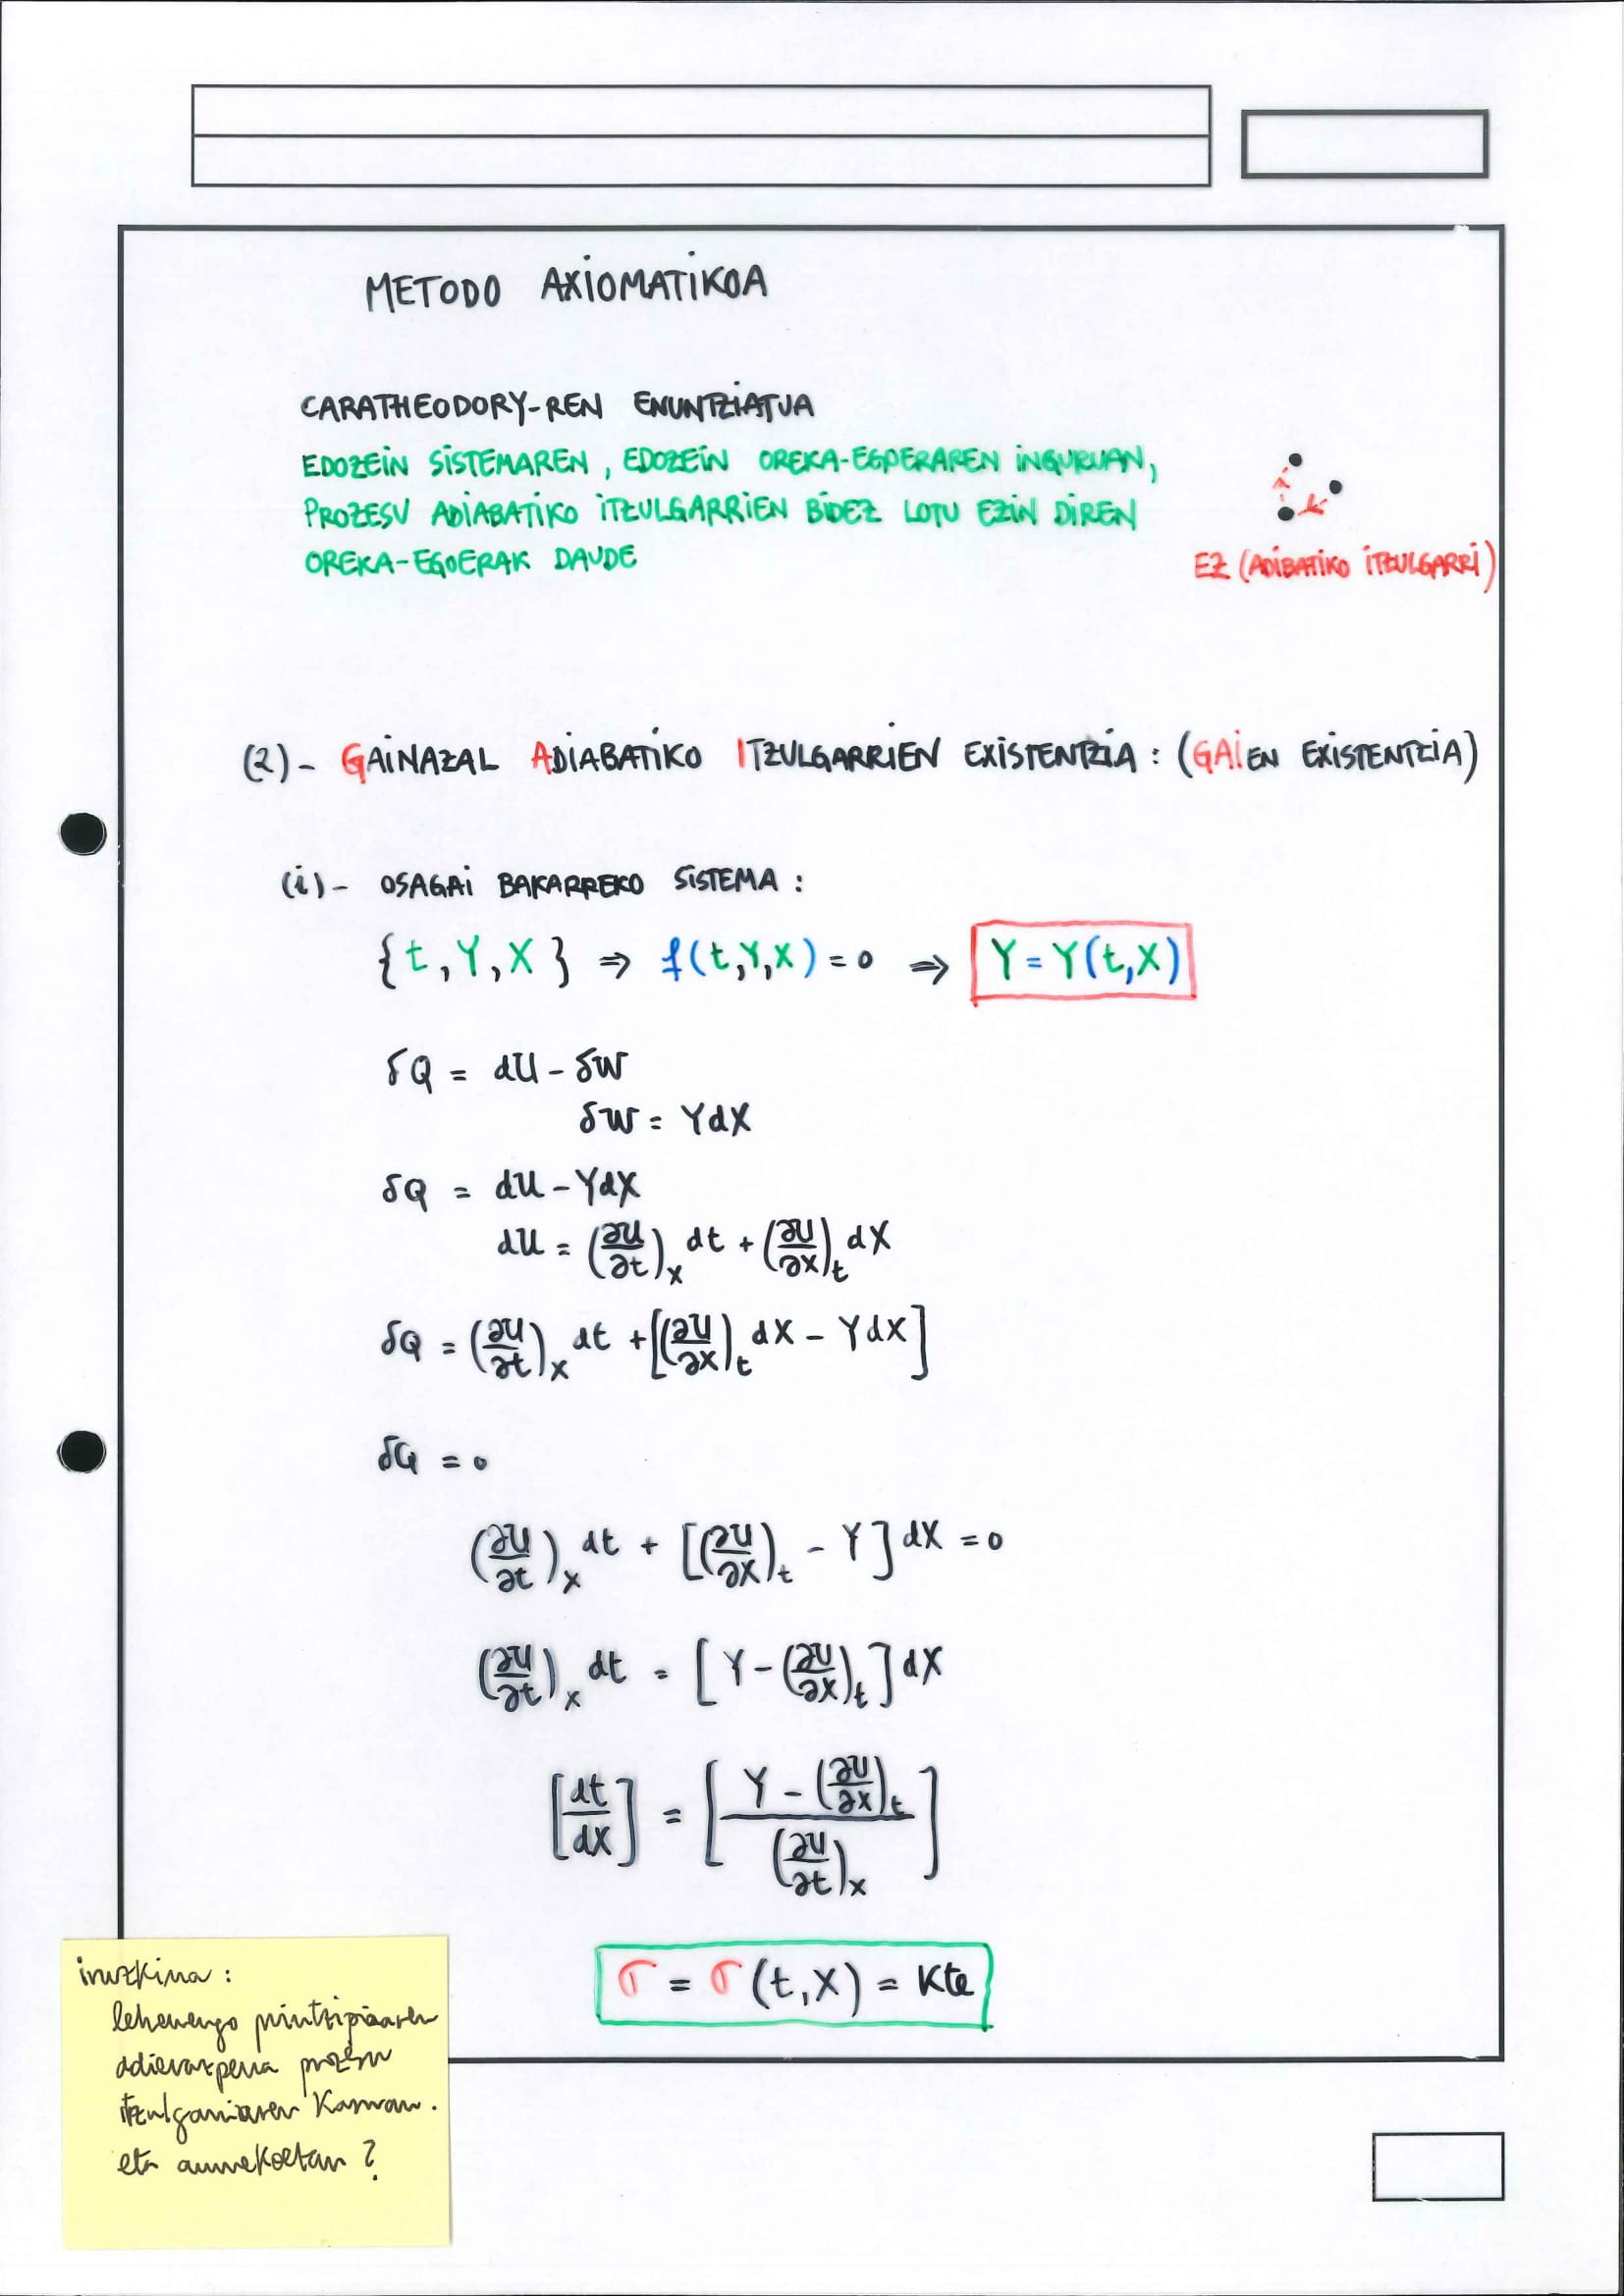 METODO AXIOMATIKOA
CARATHEODORY-REN ENUNTZIATUA
EDOZEIN SISTEMAREN, EDOZEIN OREKA-EGOERAREN INGURUAN,
PROZESU ADIABATIKO ITZULGARRIEN BIDEZ LOTU EZIN DIREN
OREKA-EGOERAK DAUDE
EZ (ADIBATIKO ITZULGARRI)
(2)- GAINAZAL ADIABATIKO ITZULGARRIEN EXISTENTZIA: (GAIEN EXISTENTZIA)
(i)- OSAGAI BAKARREKO SISTEMA:
{t, Y, X} ⇒ f(t,Y,X) = 0 ⇒ Y = Y(t,X)
δQ = dU - δW
δW = YdX
δQ = dU - YdX
dU = (∂U/∂t)_X dt + (∂U/∂X)_t dX
δQ = (∂U/∂t)_X dt + [(∂U/∂X)_t dX - YdX]
δQ = 0
(∂U/∂t)_X dt + [(∂U/∂X)_t - Y] dX = 0
(∂U/∂t)_X dt = [Y - (∂U/∂X)_t] dX
[dt/dX] = [(Y - (∂U/∂X)_t) / (∂U/∂t)_X]
σ = σ(t,X) = Kte
iruzkina:
lehenengo printzipioaren
adierazpena prozesu
itzulgarriaren kasuan.
eta aurrekoetan?